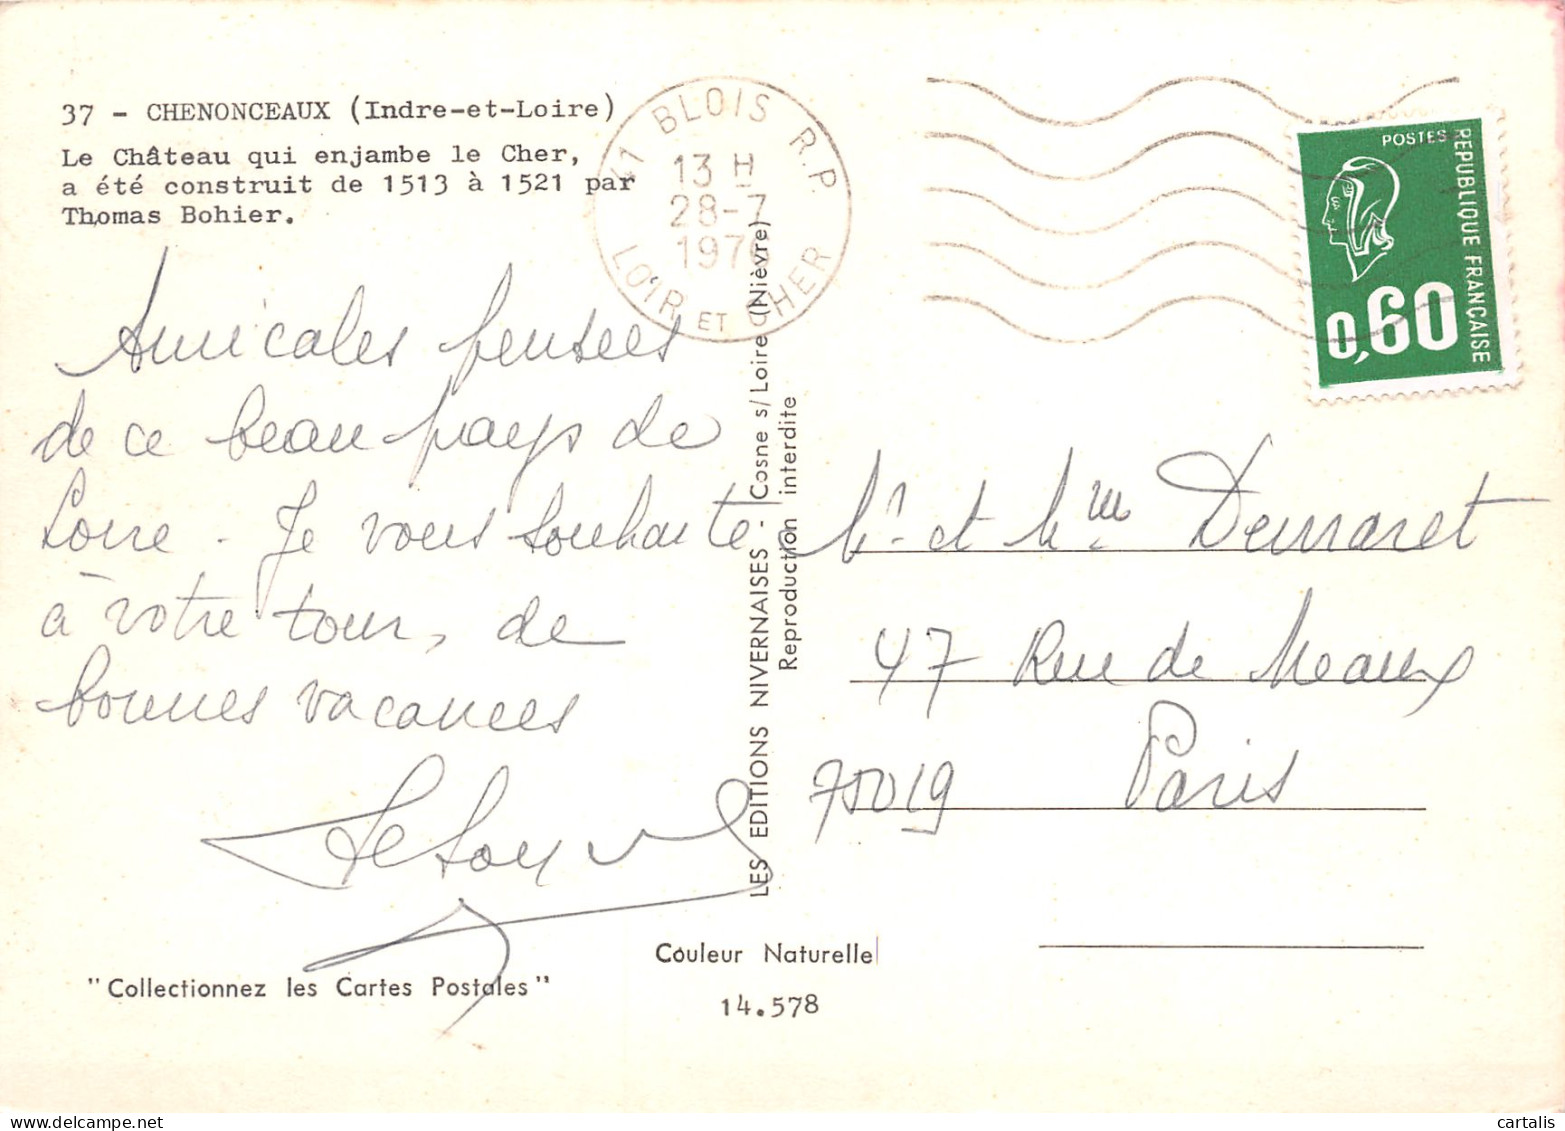 37 - CHENONCEAUX (Indre-et-Loire)
Le Château qui enjambe le Cher,
a été construit de 1513 à 1521 par
Thomas Bohier.
41 BLOIS R.P.
13 H
28-7
1976
LOIR ET CHER
POSTES
REPUBLIQUE FRANÇAISE
0,60
Amicales pensées
de ce beau pays de
Loire. Je vous souhaite
à votre tour, de
bonnes vacances
LES EDITIONS NIVERNAISES - Cosne s/Loire (Nièvre)
Reproduction interdite
Mr et Mme Demaret
47 Rue de Meaux
75019 Paris
Couleur Naturelle
"Collectionnez les Cartes Postales"
14.578
cartalis